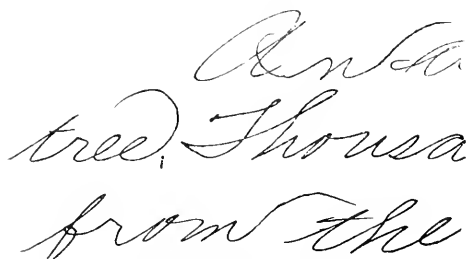 An a
tree. Thousa
from the